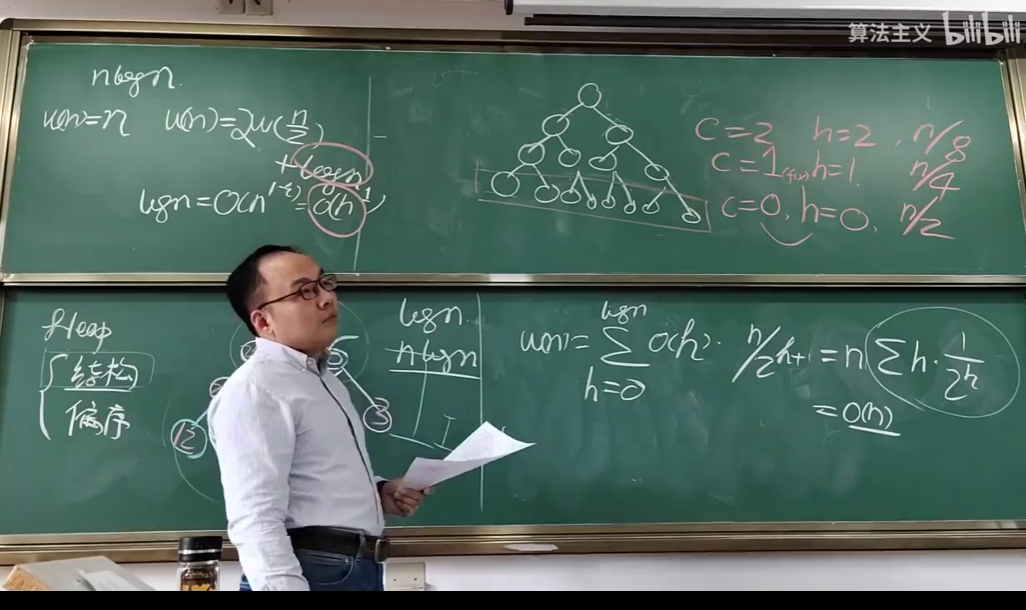 算法主义 bilibili
nlogn.
W(n)=n W(n)=2W(n/2)
+logn
logn=O(n^{1-ε})=O(n^1)
C=2 h=2, n/8
C=1 h=1. n/4
C=0, h=0, n/2
Heap
结构
偏序
12
3
logn
nlogn
W(n)=∑_{h=0}^{logn} O(h)· n/2^{h+1} = n∑h·1/2^h
=O(n)